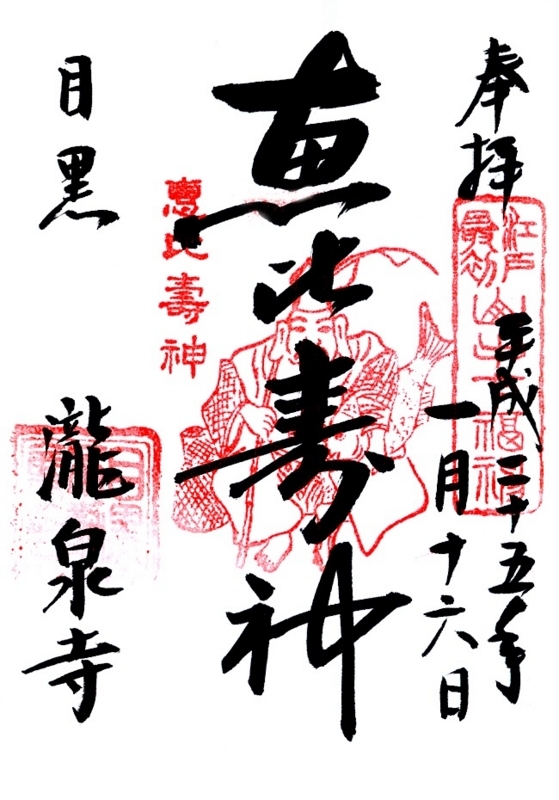 奉拝
江戸最初山手七福神
平成二十五年
一月十六日
恵比寿神
惠比壽神
目黒
瀧泉寺